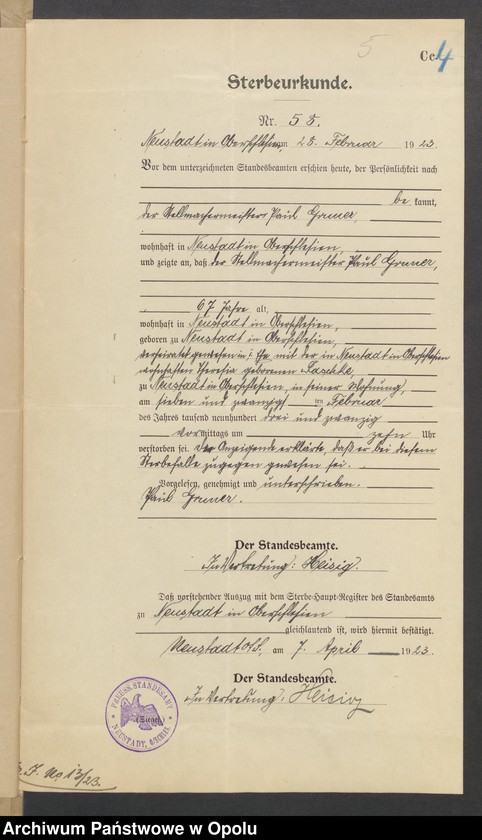 5
Cc. 4
Sterbeurkunde.
Nr. 58.
Neustadt in Oberschlesien, am 28. Februar 1923.
Vor dem unterzeichneten Standesbeamten erschien heute, der Persönlichkeit nach
be kannt,
der Stellmachermeister Paul Gruner,
wohnhaft in Neustadt in Oberschlesien,
und zeigte an, daß der Stellmachermeister Paul Gruner,
67 Jahre alt,
wohnhaft in Neustadt in Oberschlesien,
geboren zu Neustadt in Oberschlesien,
verheiratet gewesen in Ehe mit der in Neustadt in Oberschlesien
wohnhaften Theresia geborenen
zu Neustadt in Oberschlesien, in seiner Wohnung,
am sieben und zwanzigsten Februar
des Jahres tausend neunhundert drei und zwanzig
vormittags um zehn Uhr
verstorben sei. Der Anzeigende erklärte, daß er bei diesem
Sterbefalle zugegen gewesen sei.
Vorgelesen, genehmigt und unterschrieben.
Paul Gruner.
Der Standesbeamte.
In Vertretung: Heisig.
Daß vorstehender Auszug mit dem Sterbe-Haupt-Register des Standesamts
zu Neustadt in Oberschlesien
gleichlautend ist, wird hiermit bestätigt.
Neustadt O/S., am 7. April 1923.
Der Standesbeamte.
In Vertretung: Heisig
PREUSS. STANDESAMT
(Siegel)
NEUSTADT, OSCHLES.
J. No 13/23.
Archiwum Państwowe w Opolu